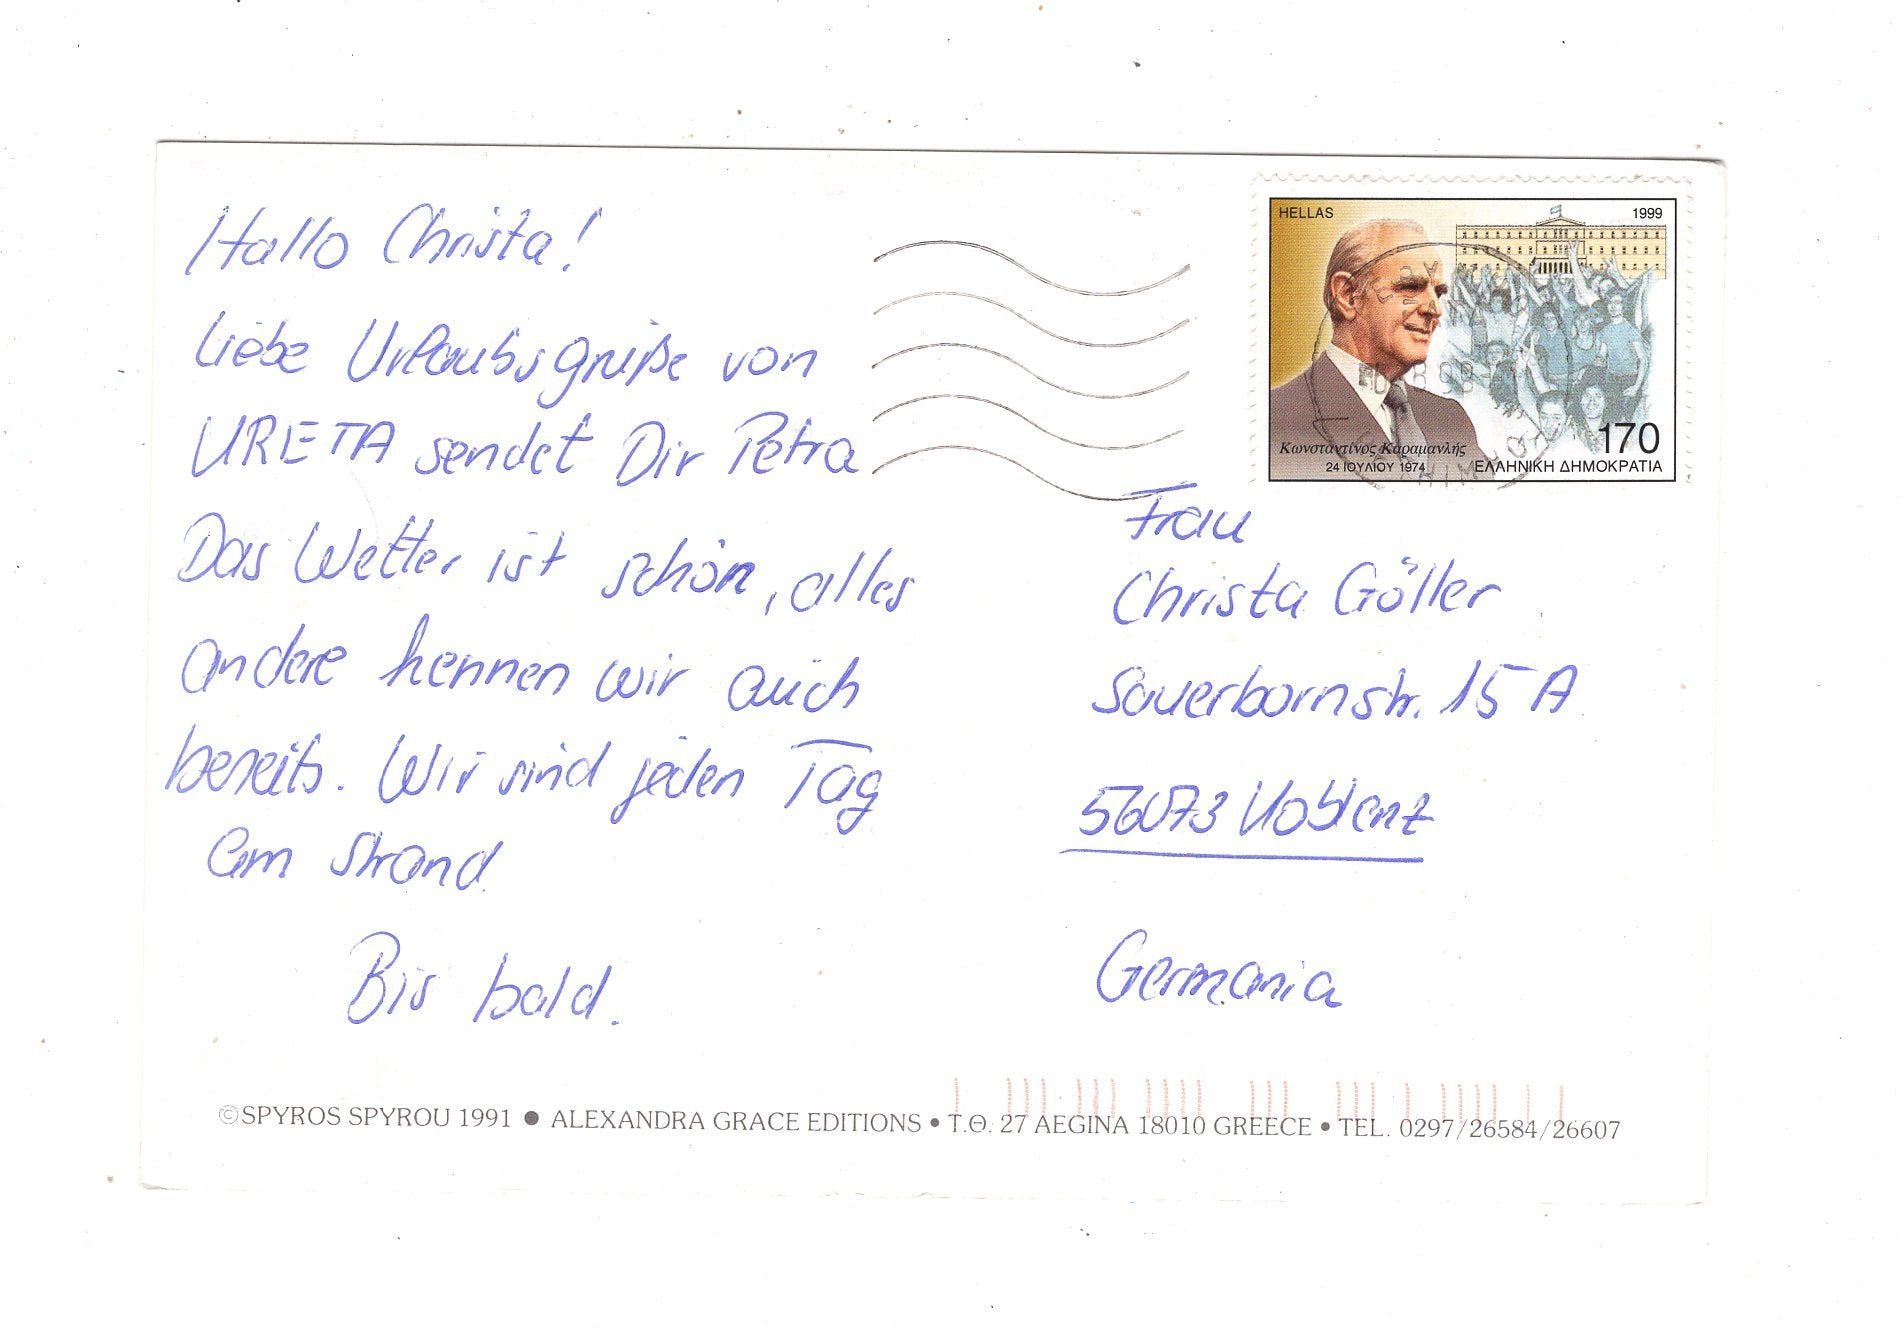 Hallo Christa!
Liebe Urlaubsgrüße von
URETA sendet Dir Petra
Das Wetter ist schön, alles
andere kennen wir auch
bereits. Wir sind jeden Tag
am Strand
Bis bald.
HELLAS 1999
Κωνσταντίνος Καραμανλής
24 ΙΟΥΛΙΟΥ 1974
170
ΕΛΛΗΝΙΚΗ ΔΗΜΟΚΡΑΤΙΑ
Frau
Christa Göller
Sauerbornstr. 15 A
56073 Koblenz
Germania
©SPYROS SPYROU 1991 ● ALEXANDRA GRACE EDITIONS • Τ.Θ. 27 AEGINA 18010 GREECE • TEL. 0297/26584/26607